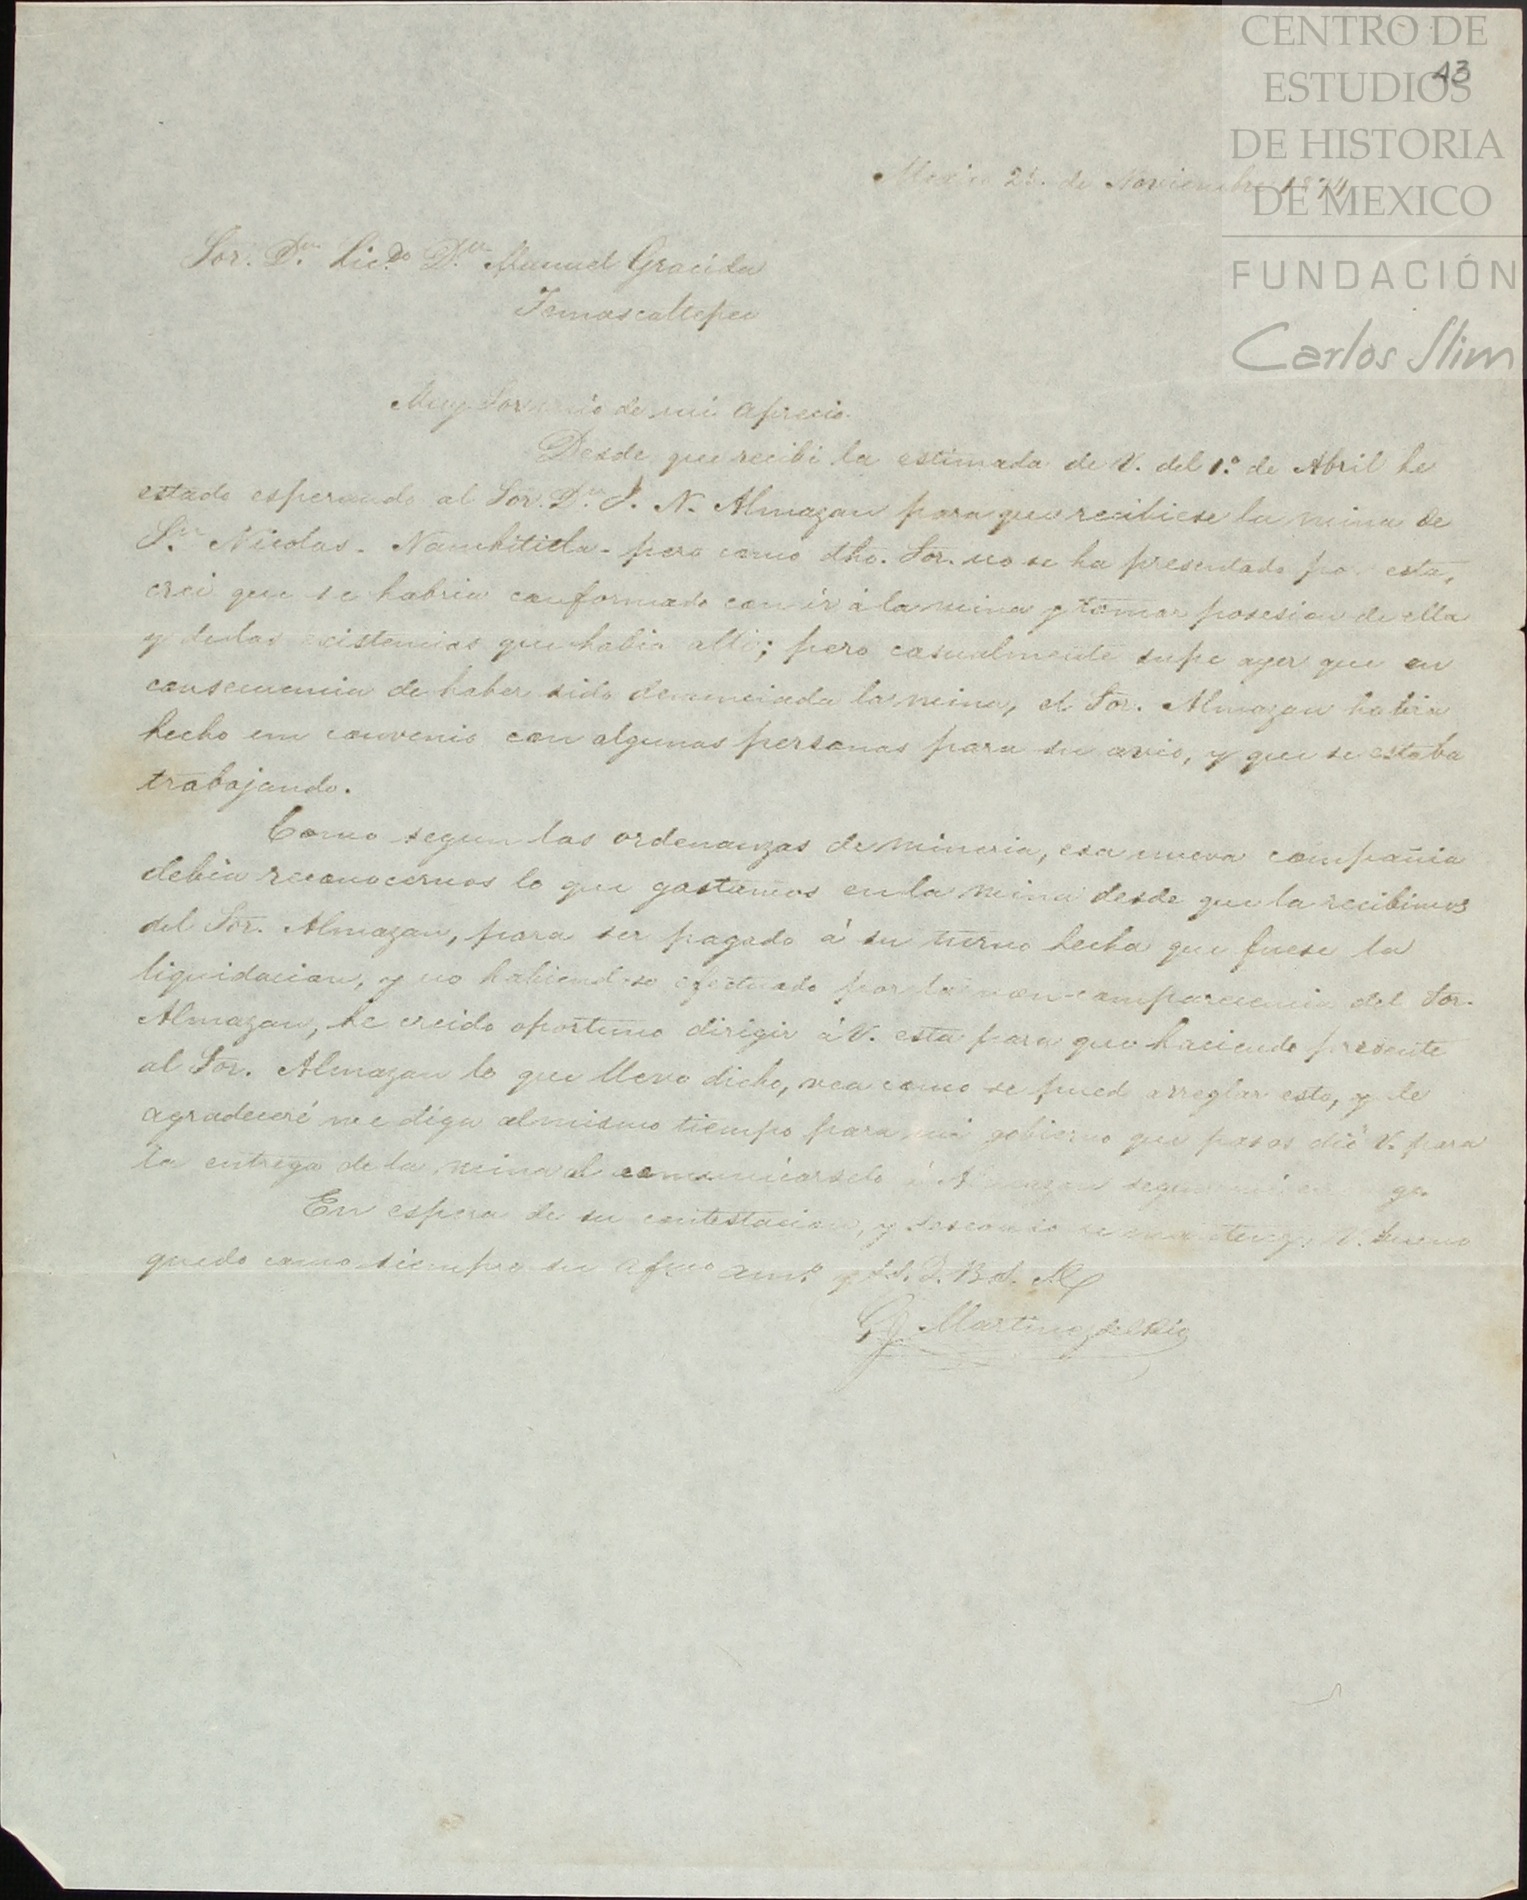 CENTRO DE
ESTUDIOS
DE HISTORIA
DE MEXICO
FUNDACIÓN
Carlos Slim
43
de Noviembre
Sor. Dn. Licdo. Dn. Manuel Gracida
Temascaltepec
Muy Sor mio de mi aprecio.
Desde que recibi la estimada de V. del 1.º de Abril he
estado esperando al Sor. Dn. J. N. Almazan para que recibiese la mina de
Sn. Nicolas - pero como dho. Sor. no se ha presentado por esta,
crei que se habria conformado con ir á la mina y tomar posesion de ella
y de las existencias que habia alli; pero casualmente supe ayer que en
consecuencia de haber sido denunciada la mina, el Sor. Almazan habia
hecho un convenio con algunas personas para su avio, y que se estaba
trabajando.
Como segun las ordenanzas de mineria, esa nueva compañia
debia reconocernos lo que gastamos en la mina desde que la recibimos
del Sor. Almazan, para ser pagado á su turno hecha que fuese la
liquidacion, y no habiendose efectuado por la non-comparecencia del Sor.
Almazan, he creido oportuno dirigir á V. esta para que haciendo presente
al Sor. Almazan lo que llevo dicho, vea como se puede arreglar esto, y le
agradeceré me diga al mismo tiempo para mi gobierno que pasos dió V. para
la entrega de la mina al comunicarselo á Almazan segun
En espera de su contestacion, y V. bueno
quedo como siempre su afmo amo. y S.S. Q. B. S. M.
G. Martinez del Rio